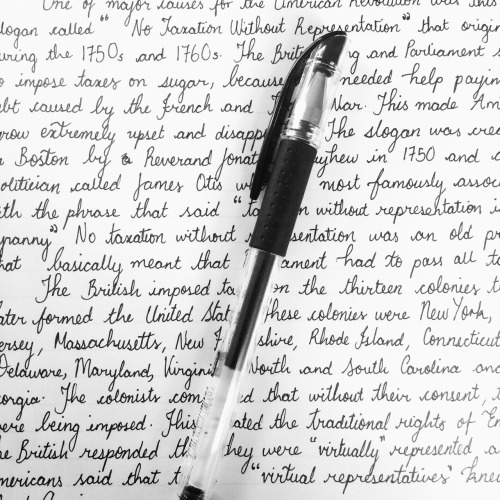 One of major causes for the American Revolution was this
slogan called " No Taxation Without Representation" that origin
uring the 1750s and 1760s. The Brit g and Parliament
o impose taxes on sugar, because needed help paying
ebt caused by the French and War. This made Am
grow extremely upset and disapp The slogan was crea
Boston by a Reverand Jonat yhew in 1750 and a
olitician called James Otis w most famously assoc
ith the phrase that said "ta n without representation is
yranny" No taxation without r sentation was an old pr
hat basically meant that ament had to pass all ta
The British imposed ta on the thirteen colonies t
ater formed the United Stat These colonies were New York,
ersey, Massachusetts, New shire, Rhode Island, Connecticut
Delaware, Maryland, Virgini North and South Carolina and
eorgia. The colonists com ed that without their consent, t
ere being imposed. This ated the traditional rights of En
he British responded th they were "virtually" represented a
mericans said that t "virtual representatives" knew